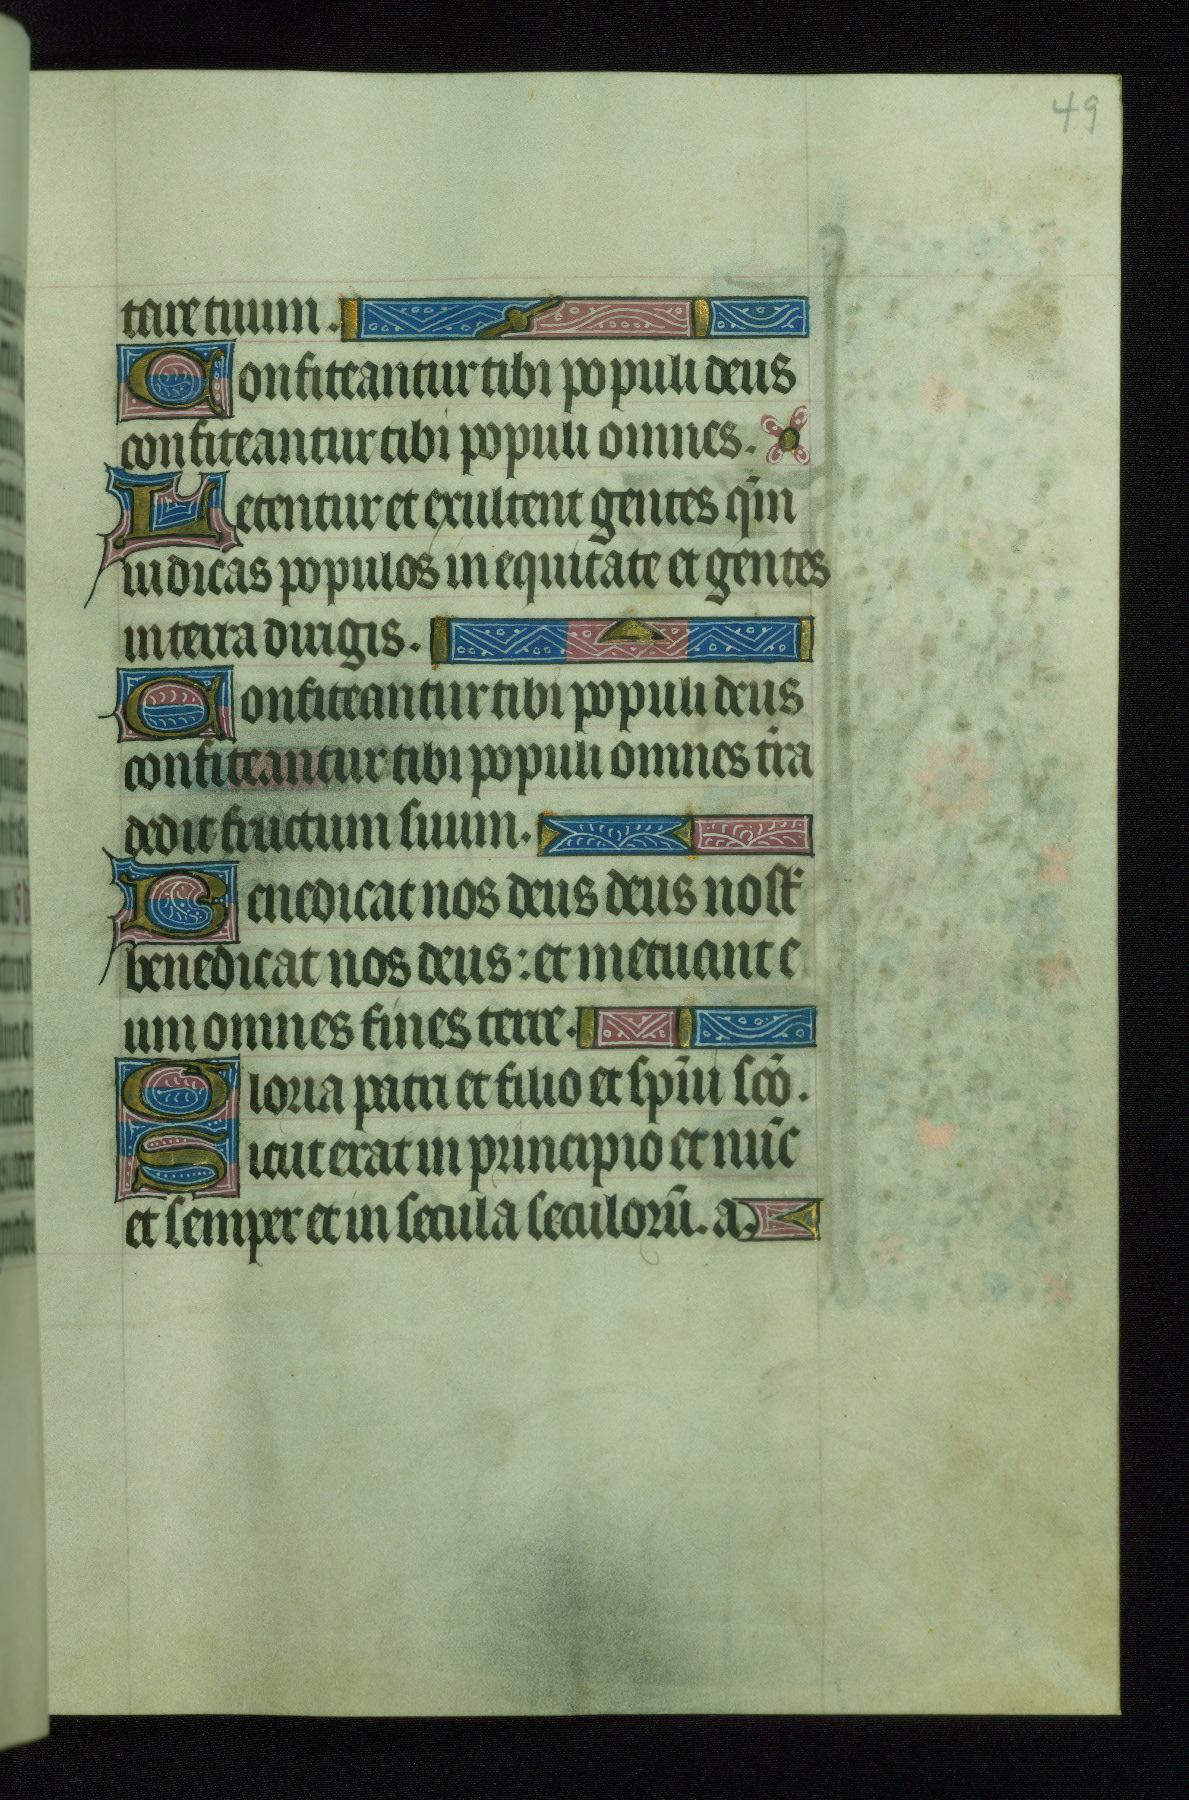 49
tare tuum.
Confiteantur tibi populi deus
confiteantur tibi populi omnes.
Letentur et exultent gentes qm̄
iudicas populos in equitate et gentes
in terra dirigis.
Confiteantur tibi populi deus
confiteantur tibi populi omnes t̄ra
dedit fructum suum.
Benedicat nos deus deus nost̄
benedicat nos deus: et metuant e
um omnes fines terre.
Gloria patri et filio et sp̄iū sc̄o.
Sicut erat in principio et nūc
et semper et in secula seculorū. a.